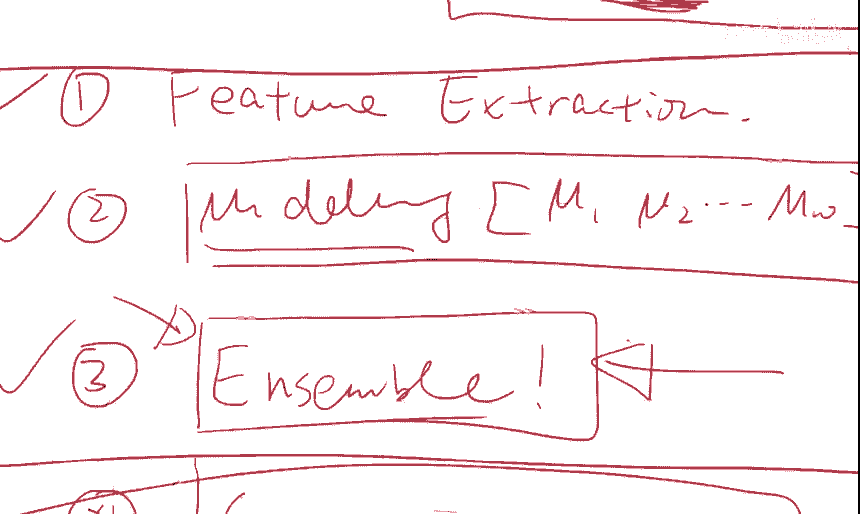 ① Feature Extraction.
② Modeling [ M₁ M₂ ... M₁₀
③ Ensemble!